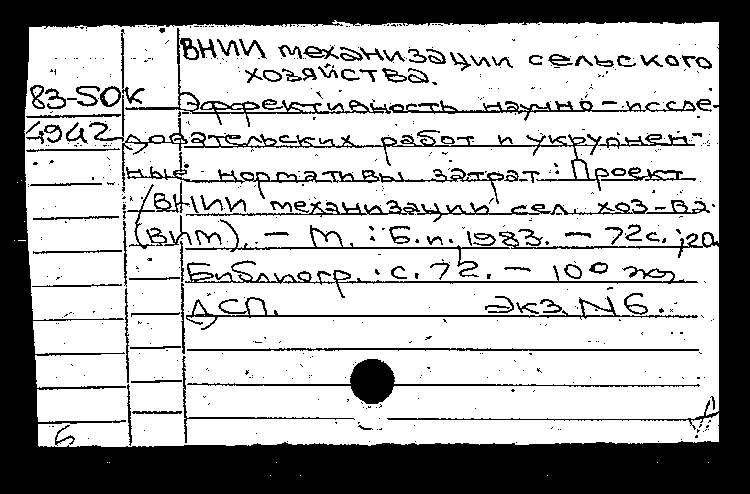 ВНИИ механизации сельского
хозяйства.
83-50К
4942
Эффективность научно-иссле-
довательских работ и укрупнен-
ные нормативы затрат: Проект
/ВНИИ механизации сел. хоз-ва.
(ВИМ). — М.: Б.и., 1983. — 72с.; 20
Библиогр.: с. 72. — 100 экз
ДСП. Экз. N 6.
Б